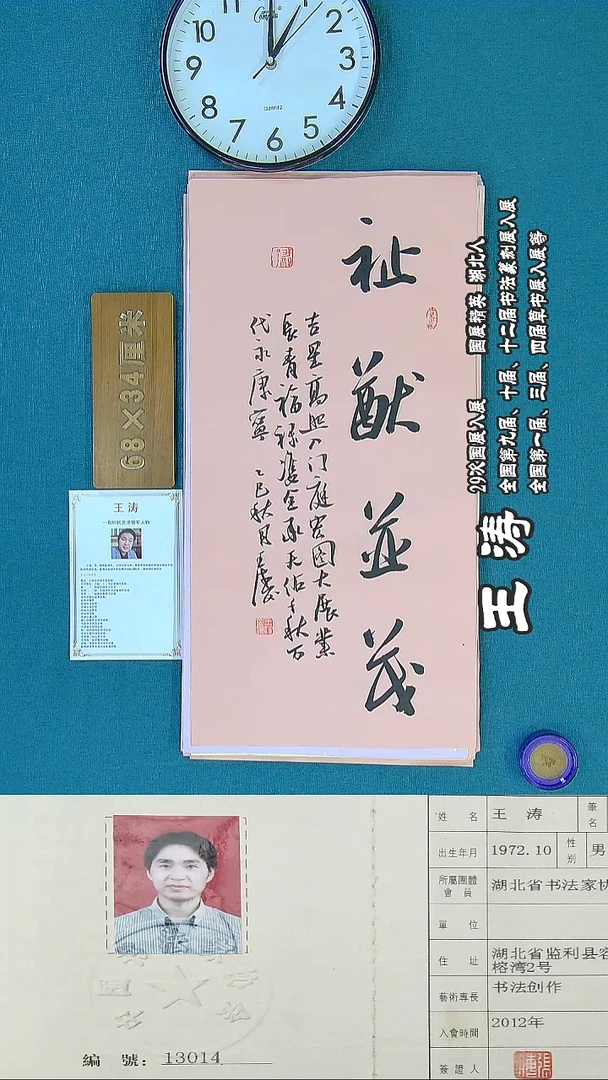 11
10
9
8
7
6
5
4
3
2
QUARTZ
祉猷並茂
吉星高照入门庭宏图大展业
长青福禄双全承天佑千秋万
代永康宁 乙巳秋月王涛
68×34厘米
王涛
国展精英 湖北人
29次国展入展
全国第九届、十届、十二届书法篆刻展入展
全国第一届、三届、四届草书展入展等
王涛
姓 名 王 涛 筆名
出生年月 1972.10 性别 男
所屬團體會員 湖北省书法家协
單 位
住 址 湖北省监利县容
榕湾2号
藝術專長 书法创作
入會時間 2012年
簽證人
編 號：13014